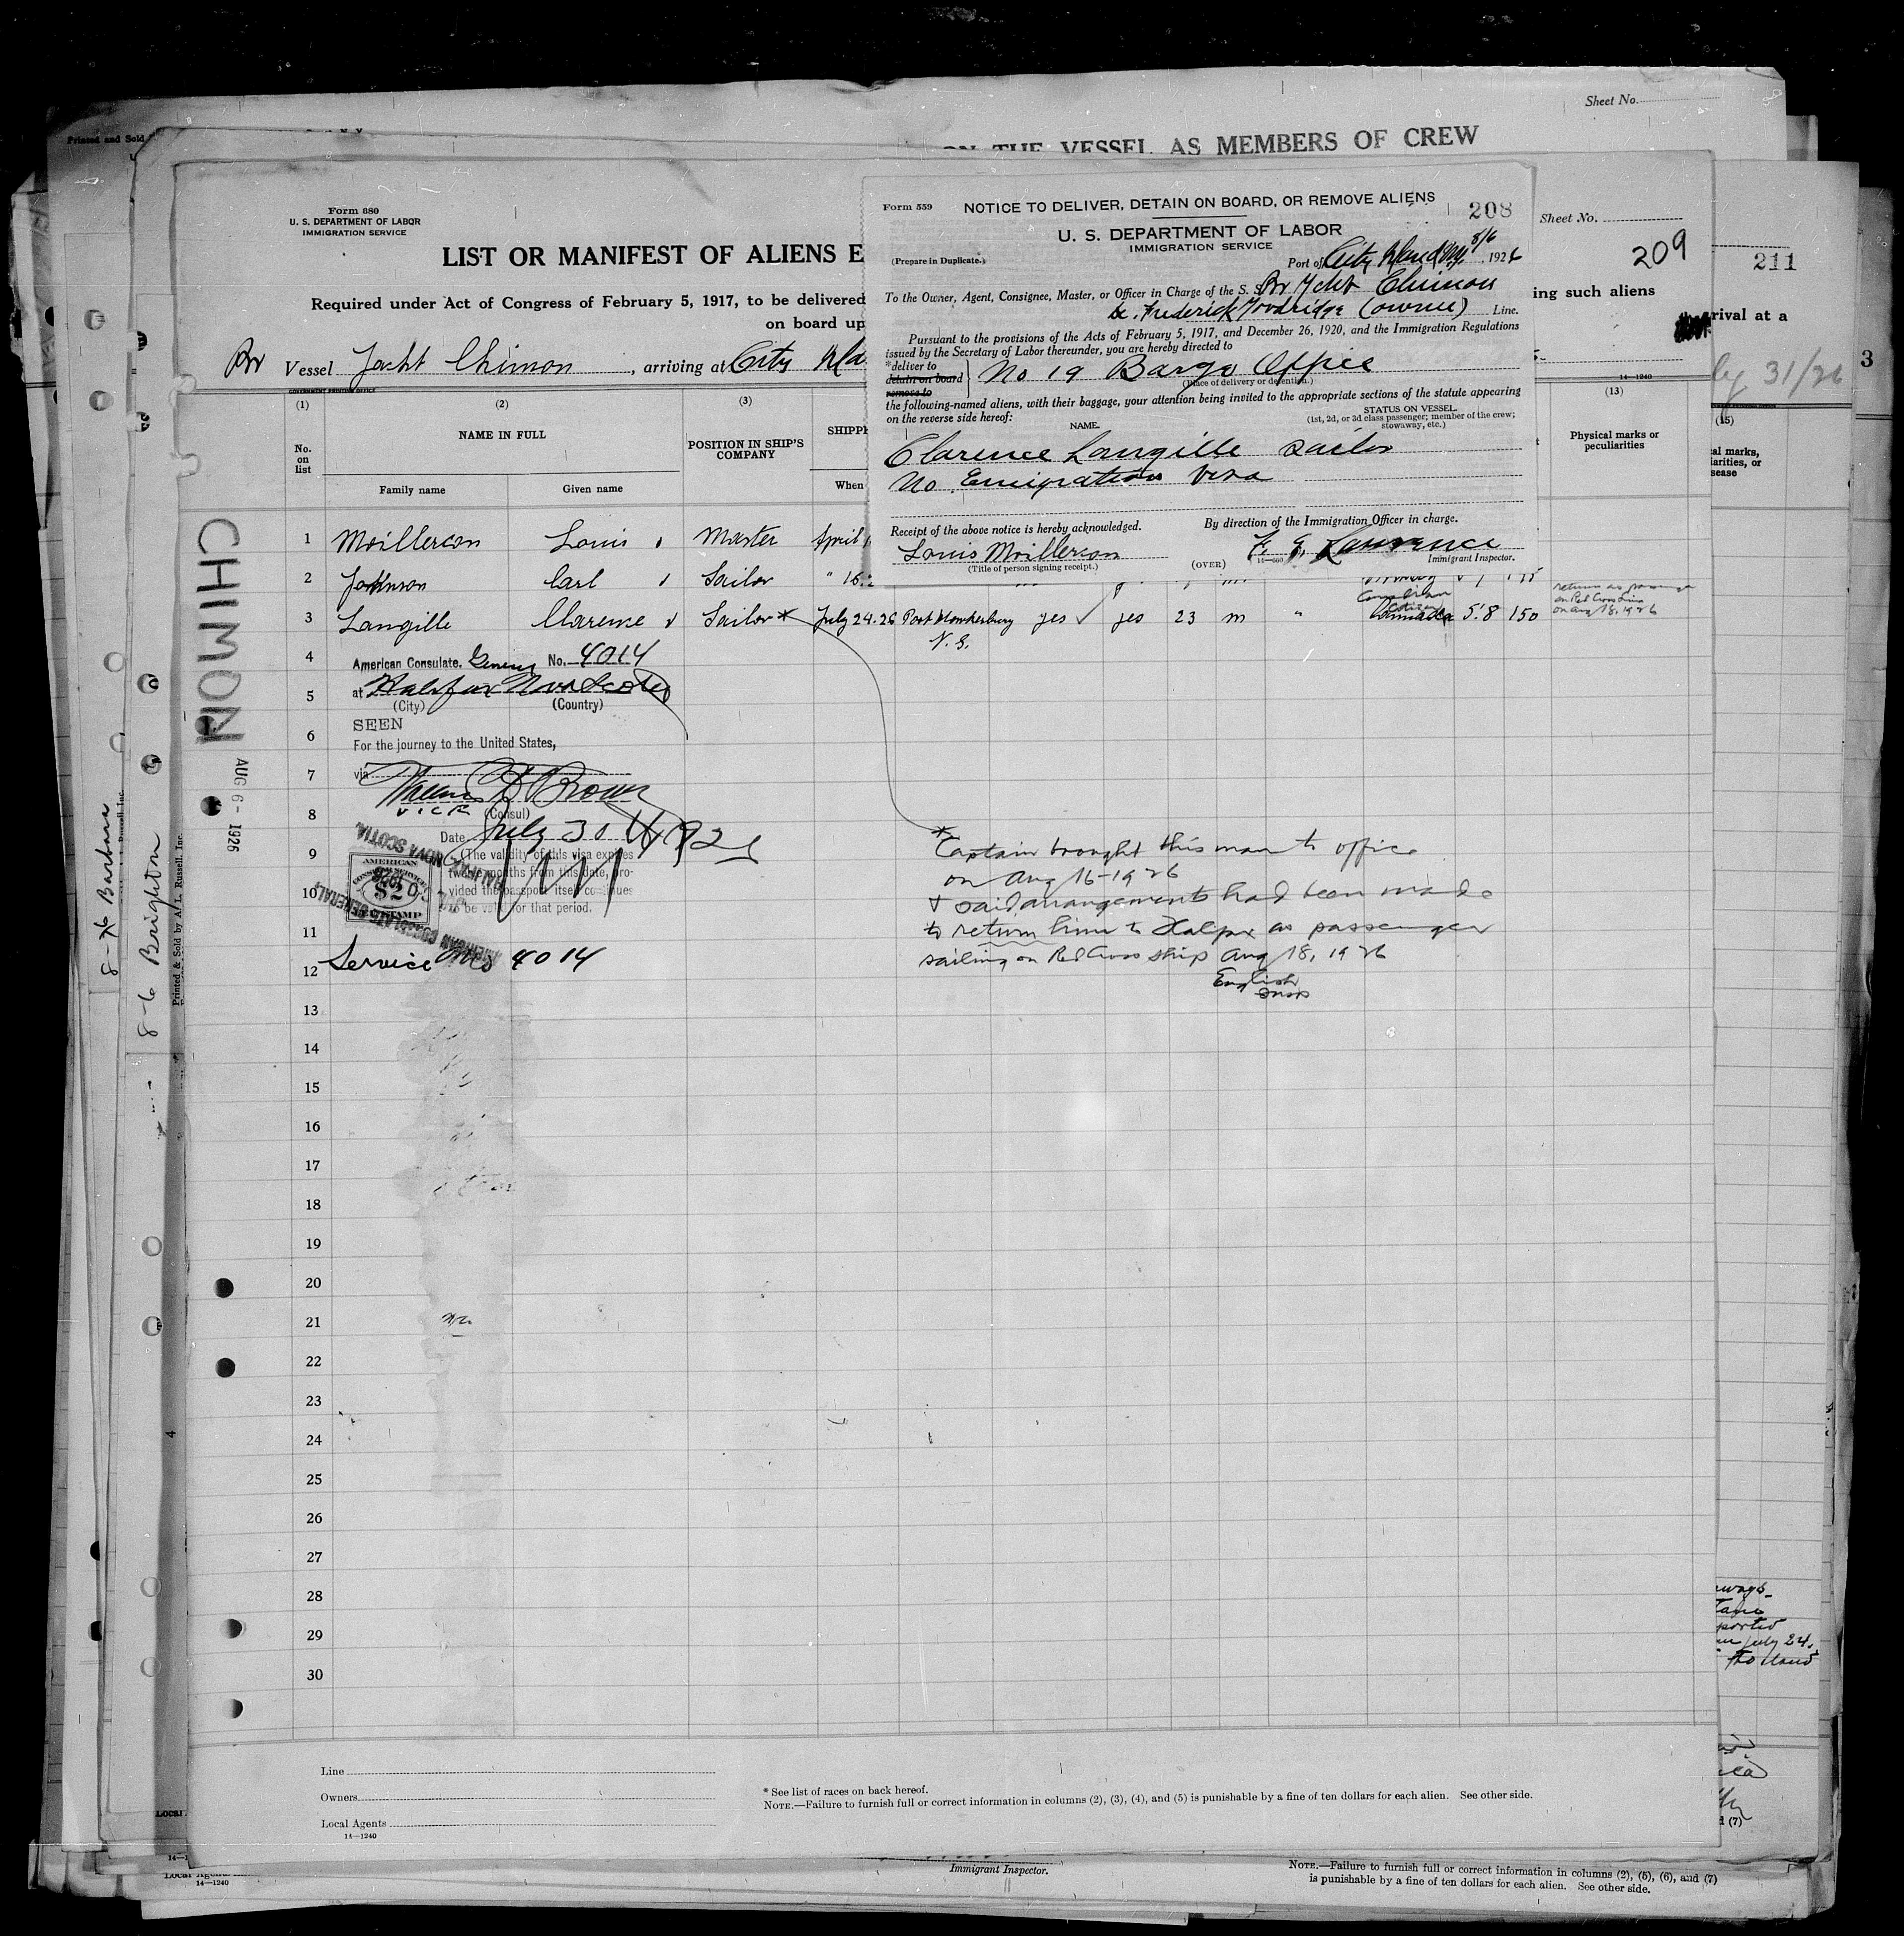 Sheet No.
Printed and Sold
ON THE VESSEL AS MEMBERS OF CREW
Form 680
U. S. DEPARTMENT OF LABOR
IMMIGRATION SERVICE
LIST OR MANIFEST OF ALIENS E
Required under Act of Congress of February 5, 1917, to be delivered
on board up
Br Vessel Yacht Chimon, arriving at City Isla
GOVERNMENT PRINTING OFFICE
Form 559
NOTICE TO DELIVER, DETAIN ON BOARD, OR REMOVE ALIENS
208
U. S. DEPARTMENT OF LABOR
IMMIGRATION SERVICE
(Prepare in Duplicate.)
Port of City Island N.Y. 8/6 1926
To the Owner, Agent, Consignee, Master, or Officer in Charge of the S. S. Br Ycht Chimon
Frederick (owner) Line.
Pursuant to the provisions of the Acts of February 5, 1917, and December 26, 1920, and the Immigration Regulations
issued by the Secretary of Labor thereunder, you are hereby directed to
*deliver to
detain on board
remove to
No 19 Barge Office
(Place of delivery or detention.)
the following-named aliens, with their baggage, your attention being invited to the appropriate sections of the statute appearing
on the reverse side hereof:
NAME.
STATUS ON VESSEL.
(1st, 2d, or 3d class passenger; member of the crew;
stowaway, etc.)
Clarence Langille Sailor
No Emigration Visa
Receipt of the above notice is hereby acknowledged.
By direction of the Immigration Officer in charge.
Louis Moillerson
(Title of person signing receipt.)
(OVER)
Lawrence
Immigrant Inspector.
Sheet No.
209
211
ing such aliens
rival at a
14—1240
31/26
3
(1) (2) (3) (13)
(15)
No. on list
NAME IN FULL
Family name Given name
POSITION IN SHIP'S COMPANY
SHIPP
When
Physical marks or peculiarities
al marks,
larities, or
sease
1 Moillerson Louis Master April
2 Johnson Carl Sailor " 16.
3 Langille Clarence Sailor* July 24.26 Port Hawkesbury yes yes 23 m " Canadian 5.8 150
N. S.
return as passenger
on Red Cross Line
on Aug 18, 1926
CHIMON
AUG 6 - 1926
4
5
6
7
8
9
10
11
12
13
14
15
16
17
18
19
20
21
22
23
24
25
26
27
28
29
30
American Consulate. General No. 4014
at Halifax Nova Scotia
(City) (Country)
SEEN
For the journey to the United States,
via
VICE (Consul)
Date July 30 1926
(The validity of this visa expires
twelve months from this date, pro-
vided the passport itself continues
to be valid for that period.
AMERICAN
CONSULAR SERVICE
$2
FEE STAMP
AMERICAN CONSULATE GENERAL
HALIFAX, NOVA SCOTIA.
Service No 4014
*
Captain brought this man to office
on Aug 16-1926
& said arrangements had been made
to return him to Halifax as passenger
sailing on Red Cross ship Aug 18, 1926
English
8-6 Barbara
8-6 Brighton
Printed & Sold by A/L. Russell, Inc.
4
July 24,
Line
Owners
Local Agents
14—1240
* See list of races on back hereof.
NOTE.—Failure to furnish full or correct information in columns (2), (3), (4), and (5) is punishable by a fine of ten dollars for each alien. See other side.
Local Agents
14—1240
Immigrant Inspector.
NOTE.—Failure to furnish full or correct information in columns (2), (5), (6), and (7)
is punishable by a fine of ten dollars for each alien. See other side.